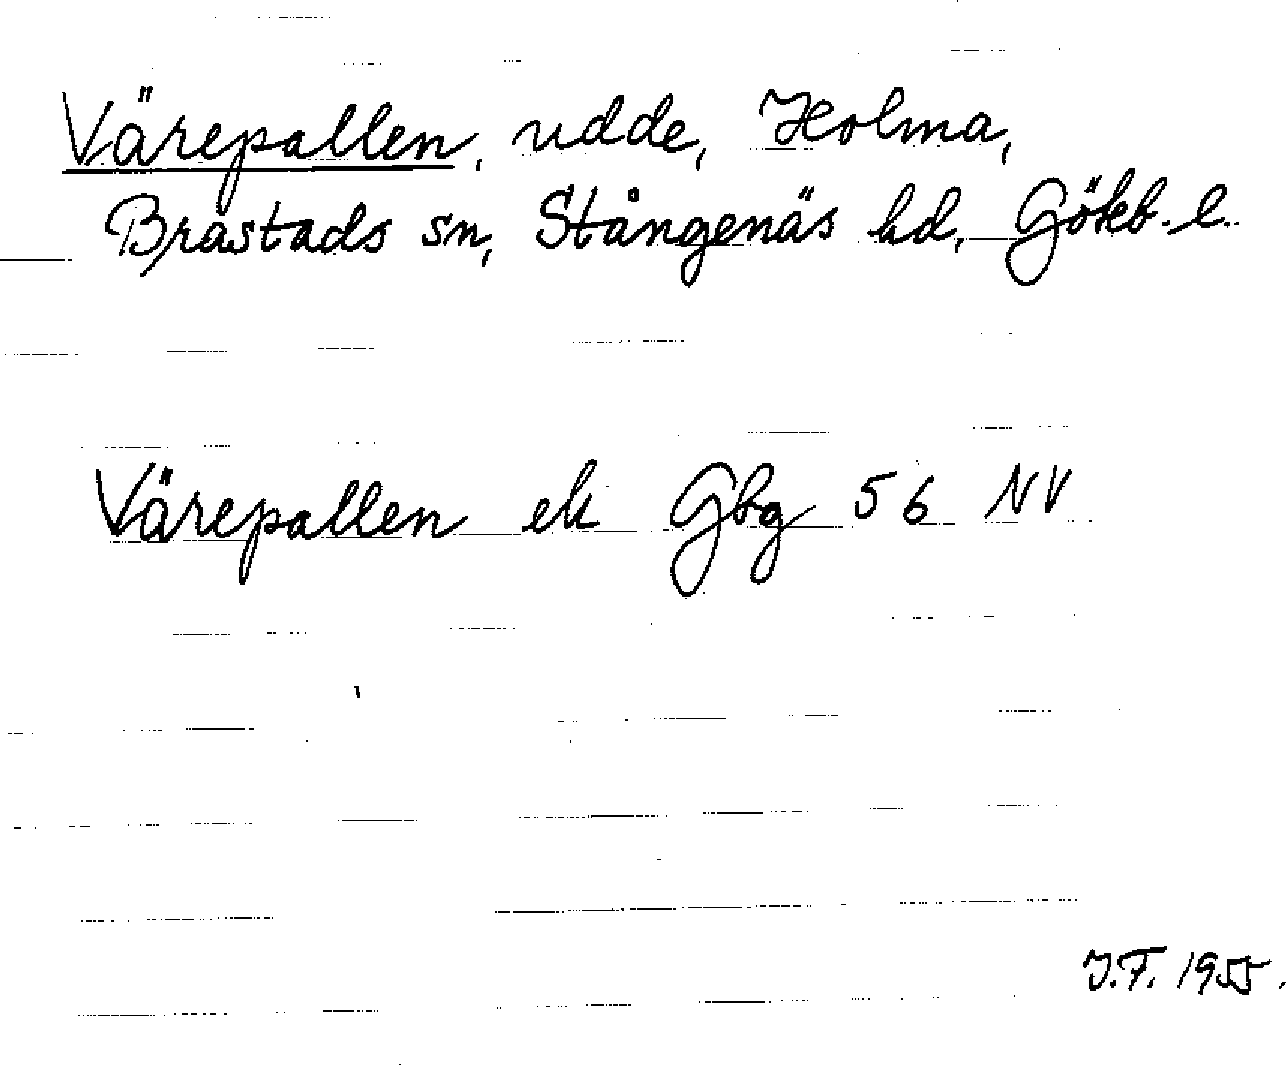 Värepallen, udde, Holma,
Brastads sn, Stångenäs hd, Gökb. l.
Värepallen ek Gbg 56 NV
J.F. 1955.